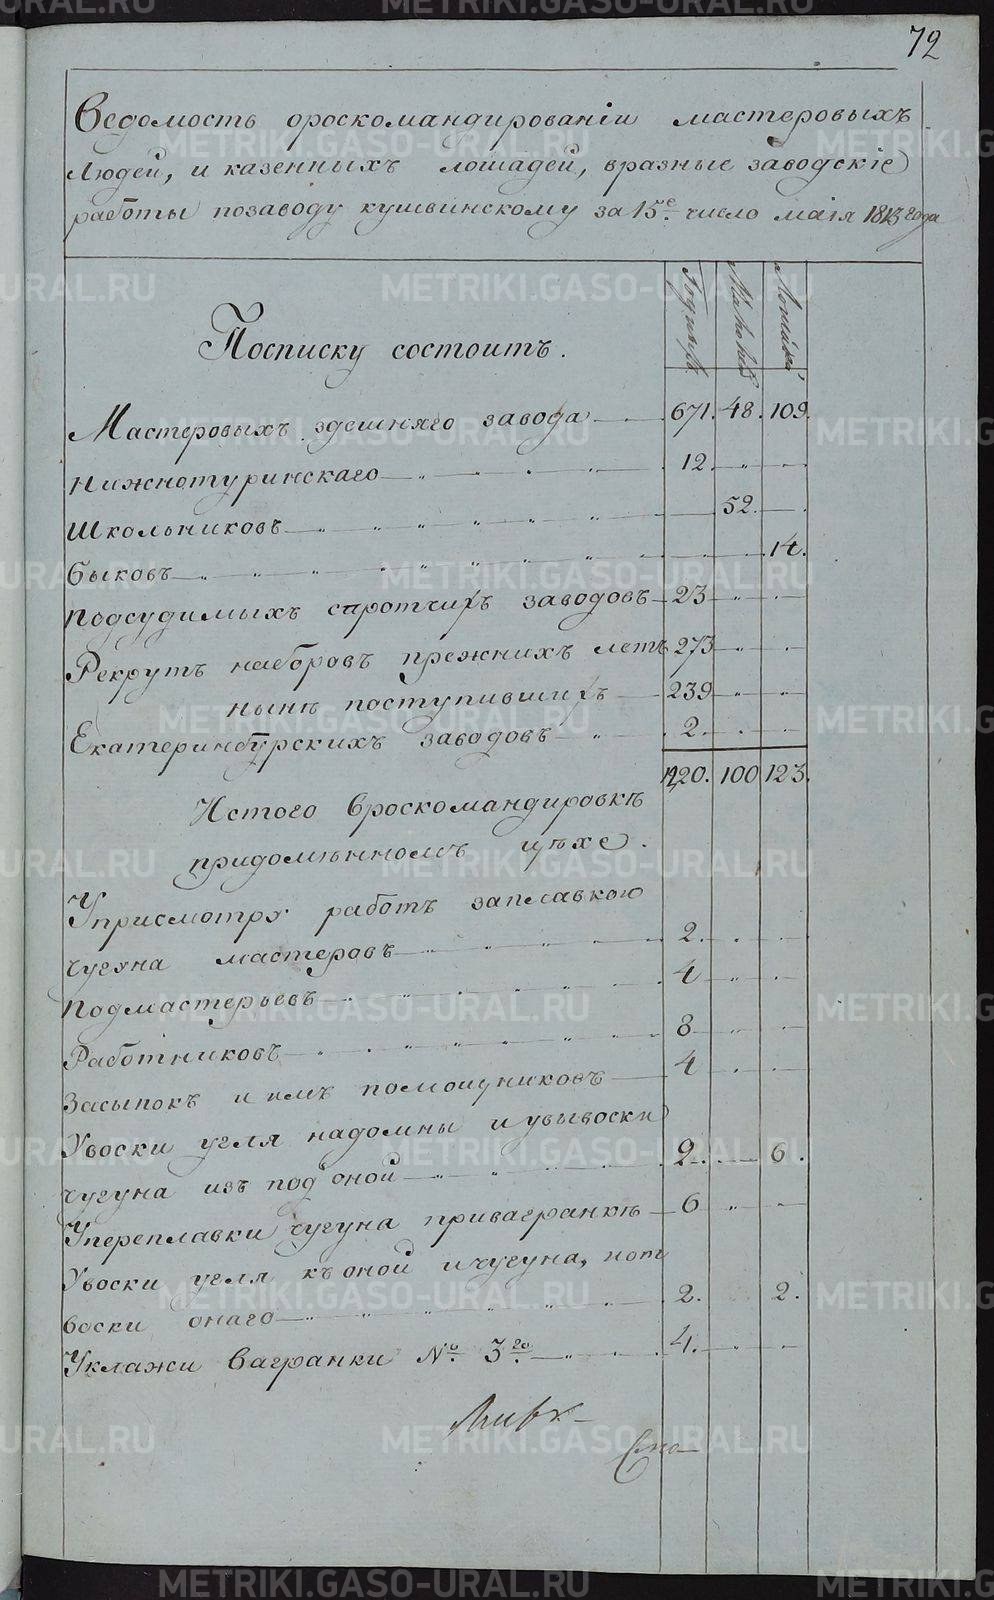 72
Ведомость ороскомандированіи мастеровыхъ
Людей, и казенныхъ лошадей, вразные заводскіе
работы позаводу кушвинскому за 15е число маія 1813 года
Годныхъ Лошадей
Посписку состоитъ.
Мастеровыхъ здешняго завода 671. 48. 109.
Нижнотуринскаго 12. " "
Школьниковъ 52.
Быковъ 14.
Подсудимыхъ спротчихъ заводовъ 23
Рекрутъ наборовъ прежнихъ летъ 273
нынѣ поступившихъ 239
Екатеринбурскихъ заводовъ 2.
1220. 100 123.
Истого вроскомандировкѣ
придомѣнномъ цѣхе.
Уприсмотру работъ заплавкою
чугуна мастеровъ 2.
Подмастерьевъ 4
Работниковъ 8
Засыпокъ и имъ помощниковъ 4
Увоски угля надомны и увывоски
чугуна изъ под оной 2. 6.
Упереплавки чугуна привагранкѣ 6
Увоски угля къ оной и чугуна,
воски онаго 2. 2.
Уклажи вагранки № 3го 4.
METRIKI.GASO-URAL.RU